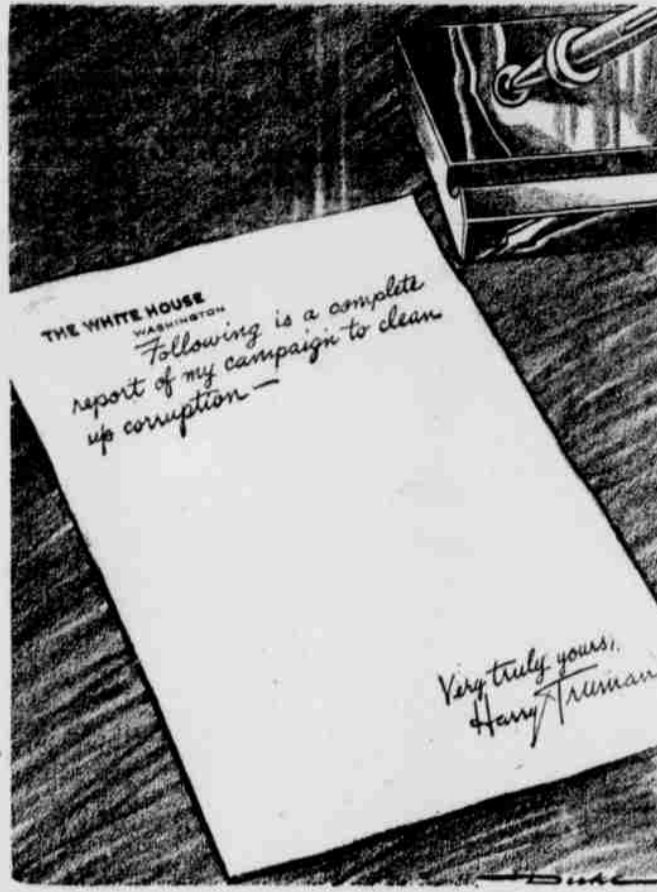 THE WHITE HOUSE
WASHINGTON
Following is a complete
report of my campaign to clean
up corruption —
Very truly yours,
Harry Truman